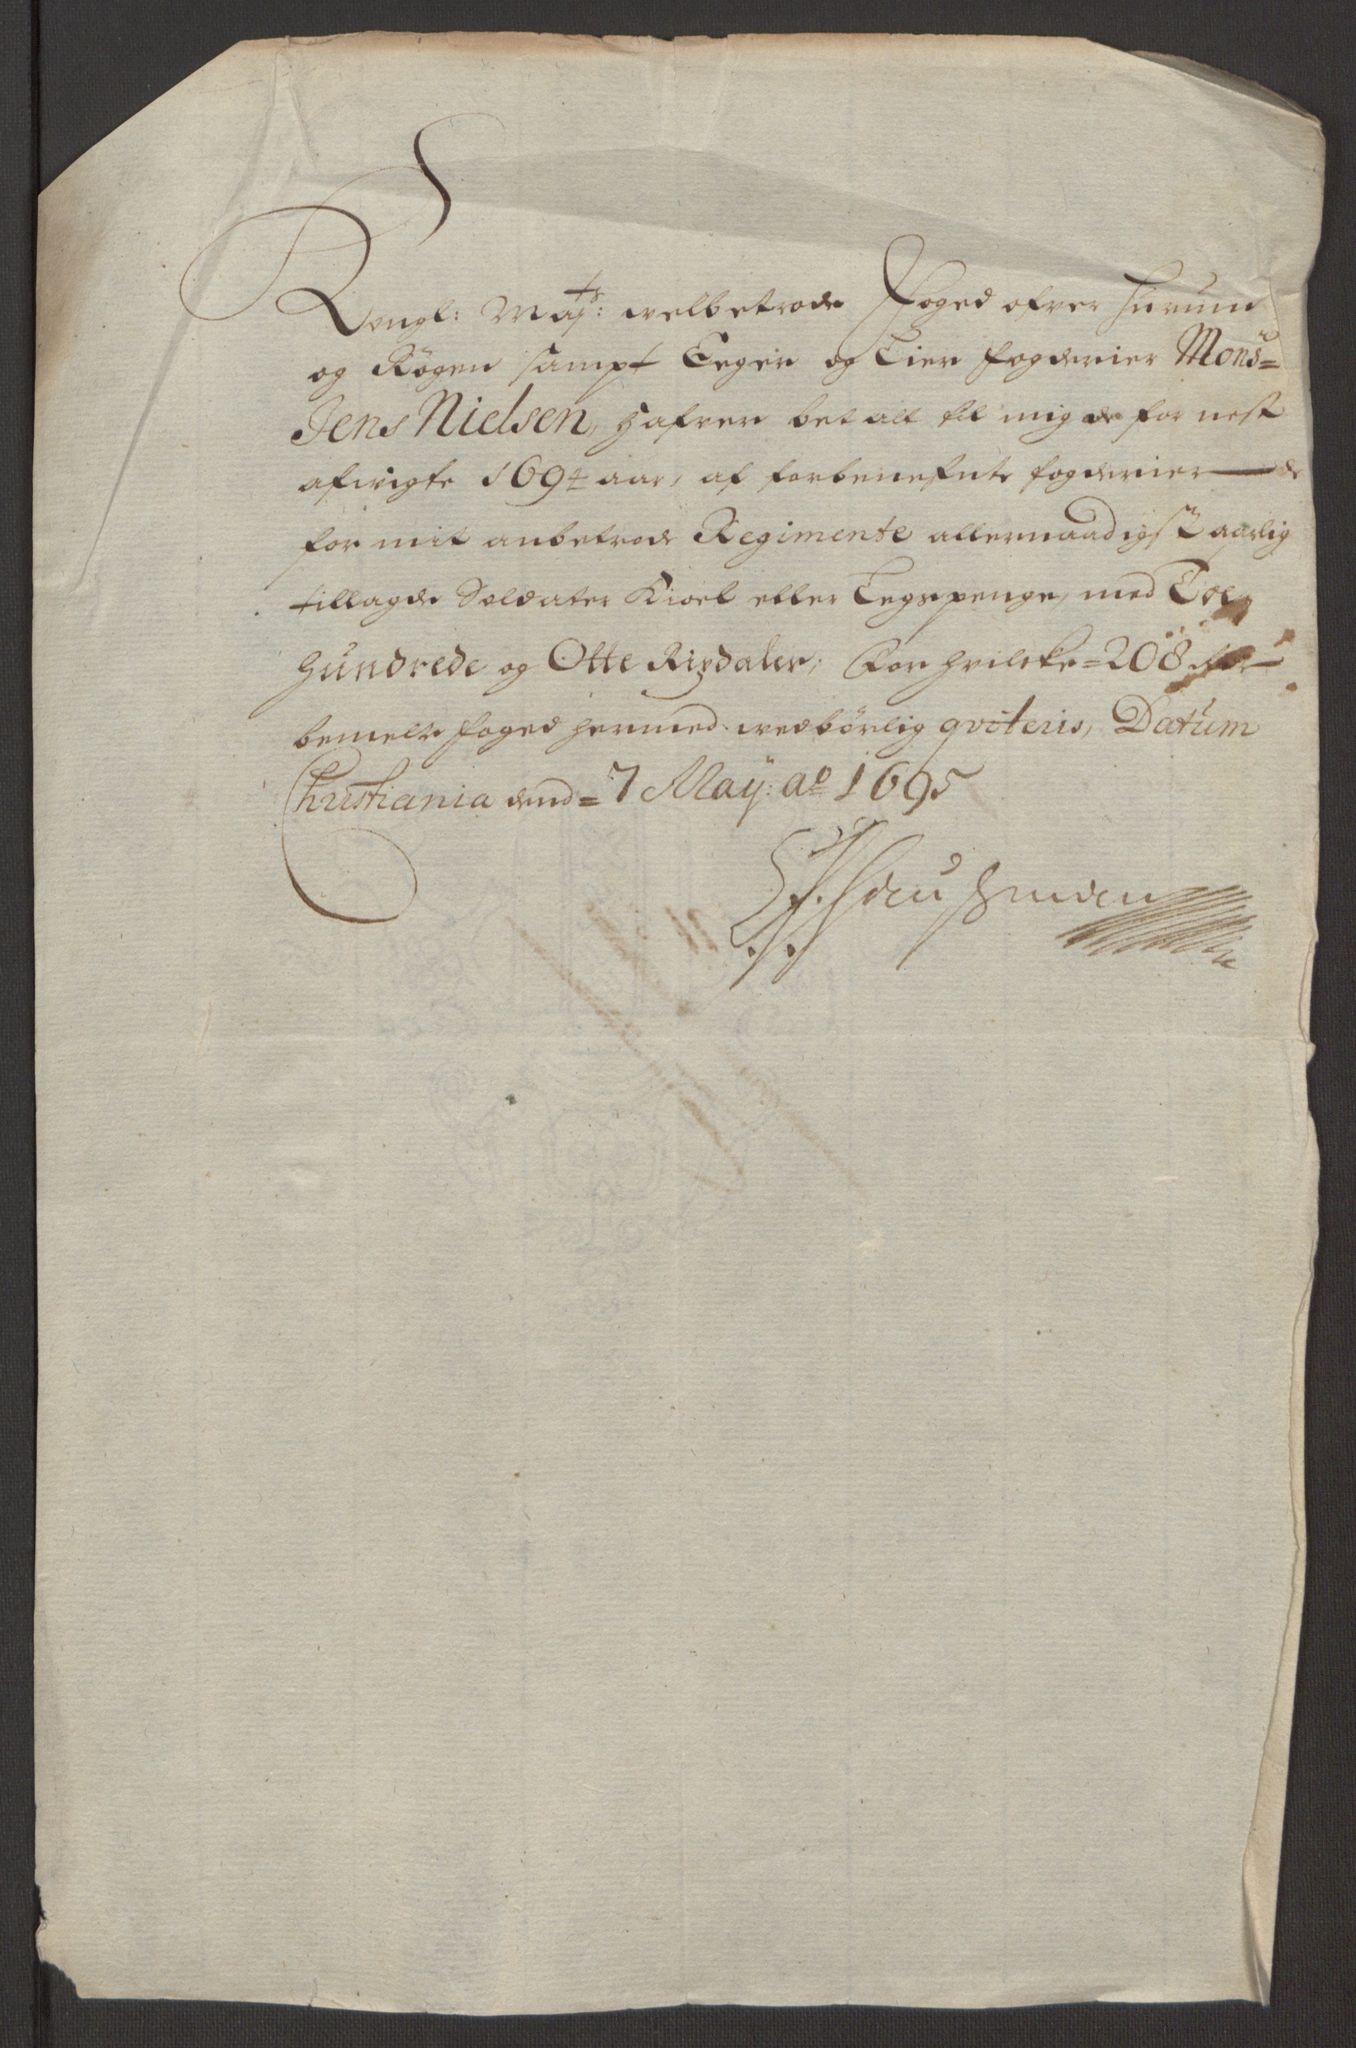 Kongl: Mayts: welbetrode Foged ofver Hurum
og Rögen sampt Eeger og Lier fogderier Monsr
Jens Nielsen, hafver betalt til mig de for nest
afvigte 1694 aar, af forbenefnte fogderier de
for mit anbetrode Regimente allernaadigst aarlig
tillagde Soldater Kioel eller Tegspenge, med Toe
hundrede og Otte Rixdaler, For hvilcke = 208 for-
bemelte foged hermed wedbörlig qviteris, Datum
Christiania dend = 7 Maÿ: ao 1695